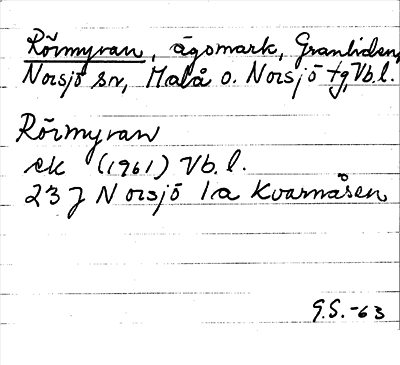 Rörmyran, ägomark, Granliden,
Norsjö sn, Malå o. Norsjö tg, Vb.l.
Rörmyran
ek (1961) Vb.l.
23 J Norsjö 1a Kvarnåsen
G.S.-63